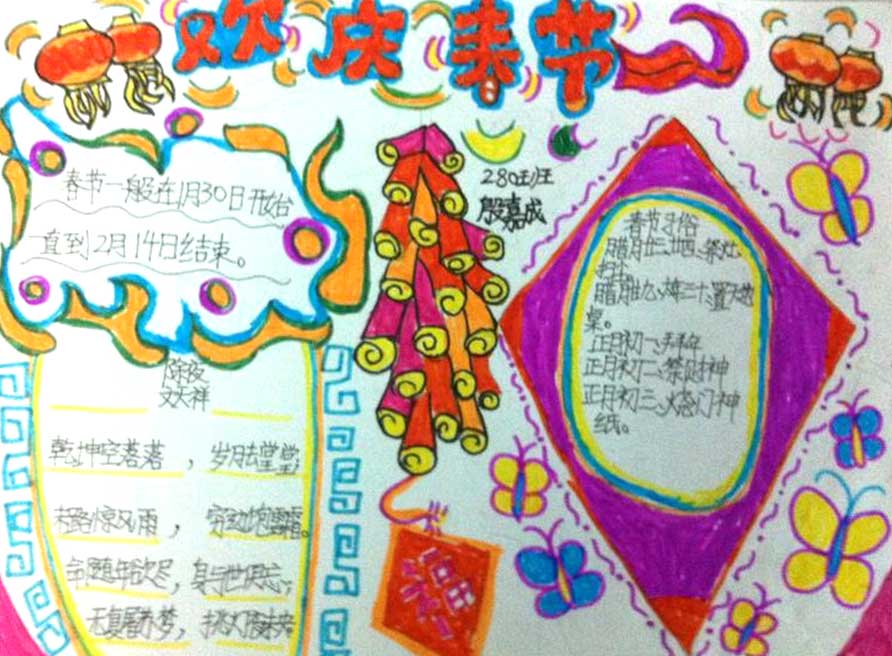 欢庆春节
春节一般在1月30日开始
一直到2月14日结束。
280班
殷嘉成
春节习俗
腊月廿三、廿四、祭灶、
扫尘
腊月廿九、三十、置天地
桌。
正月初一、拜年
正月初二、祭财神
正月初三、烧门神
纸。
除夕
文天祥
乾坤空落落，岁月去堂堂；
末路惊风雨，穷边饱雪霜。
命随年欲尽，身与世俱忘；
无复屠苏梦，挑灯夜未央